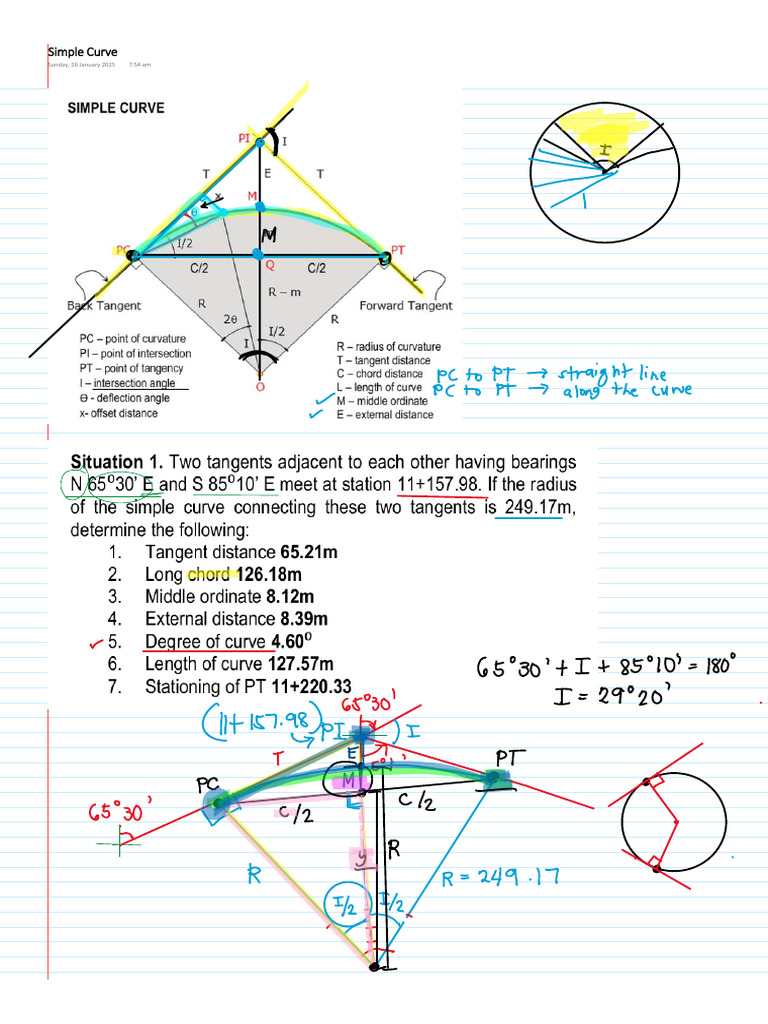 Simple Curve
Sunday, 26 January 2025 7:54 am
SIMPLE CURVE
PI
I
T
E
T
M
x
θ
I/2
M
PC
PT
C/2
Q
C/2
R – m
Back Tangent
R
R
Forward Tangent
2θ
I/2
I
O
PC – point of curvature
PI – point of intersection
PT – point of tangency
I – intersection angle
Ө - deflection angle
x- offset distance
R – radius of curvature
T – tangent distance
C – chord distance
L – length of curve
M – middle ordinate
E – external distance
PC to PT → straight line
PC to PT → along the curve
I
Situation 1. Two tangents adjacent to each other having bearings
N 65⁰30’ E and S 85⁰10’ E meet at station 11+157.98. If the radius
of the simple curve connecting these two tangents is 249.17m,
determine the following:
1. Tangent distance 65.21m
2. Long chord 126.18m
3. Middle ordinate 8.12m
4. External distance 8.39m
5. Degree of curve 4.60⁰
6. Length of curve 127.57m
7. Stationing of PT 11+220.33
65°30' + I + 85°10' = 180°
I = 29°20'
65°30'
(11+157.98)
PI
I
T
E
PT
PC
M
65°30'
C/2
C/2
y
R
R
R = 249.17
I/2
I/2